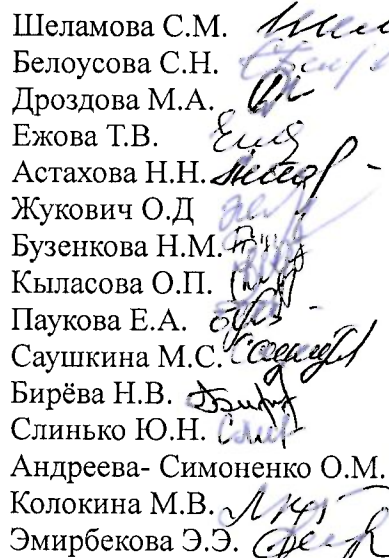 Шеламова С.М.
Белоусова С.Н.
Дроздова М.А.
Ежова Т.В.
Астахова Н.Н.
Жукович О.Д
Бузенкова Н.М.
Кыласова О.П.
Паукова Е.А.
Саушкина М.С.
Бирёва Н.В.
Слинько Ю.Н.
Андреева- Симоненко О.М.
Колокина М.В.
Эмирбекова Э.Э.